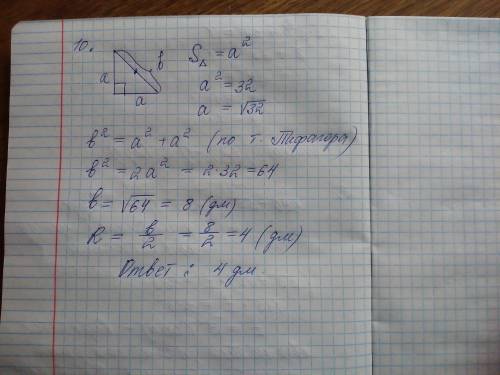 10.
a
a
в
S△ = a²
a² = 32
a = √32
в² = a² + a² (по т. Пифагора)
в² = 2a² = 2·32 = 64
в = √64 = 8 (дм)
R = в/2 = 8/2 = 4 (дм)
Ответ: 4 дм